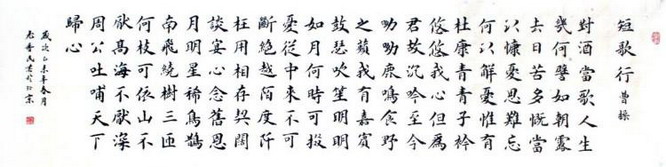 短歌行 曹操
對酒當歌人生
幾何譬如朝露
去日苦多慨當
以慷憂思難忘
何以解憂惟有
杜康青青子衿
悠悠我心但爲
君故沉吟至今
呦呦鹿鳴食野
之蘋我有嘉賓
鼓瑟吹笙明明
如月何時可掇
憂從中來不可
斷絕越陌度阡
枉用相存契闊
談宴心念舊恩
月明星稀烏鵲
南飛繞樹三匝
何枝可依山不
厭高海不厭深
周公吐哺天下
歸心
歲次乙未年春月
書於北京